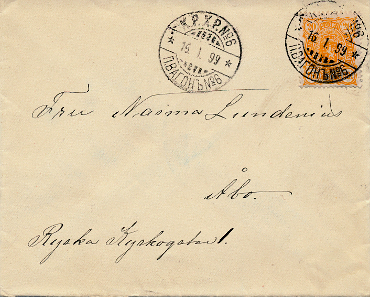 К.Р.Х.Р. №6
16. 1. 99
П.ВАГОНЪ №6
№6
16. 1. 99
П.ВАГОНЪ №6
Fru Naima Lundenius
Åbo.
Ryska Kyrkogatan 1.